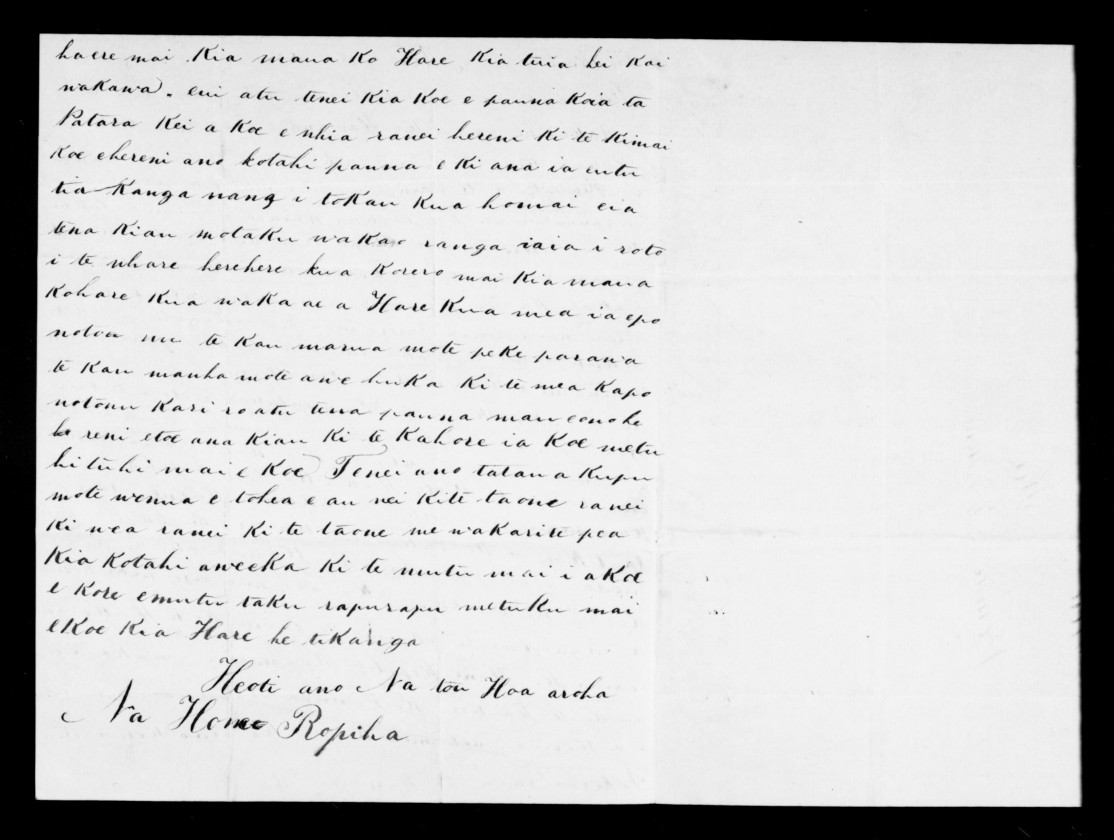 haere mai Kia maua Ko Hare Kia tuia hei Kai
wakawa. eui atu tenei Kia Koe e pauna Koia ta
Patara Kei a Koe e nhia ranei hereni Ki te Kimai
Koe ehereni ano kotahi pauna e Ki ana ia eutu
tia Kanga nana i tokau Kua homai eia
tena Kiau motaku waka ranga iaia i roto
i te whare herehere kua Korero mai Kia maua
Kohare Kua waka ae a Hare Kua mea ia epo
notoa nu te Kau marua mote peke parawa
te Kau mauha mote awe huka Ki te mea Kapo
notonu Kari roatu tena pauna mau eono he
he reni etoe ana Kiau Ki te Kahore ia Koe metu
hituhi mai e Koe Tenei ano tatau a Kupu
mote wenua e tohea e au nei Kite taone ranei
Ki wea ranei Ki te taone me wakarite pea
Kia Kotahi aweeka Ki te mutu mai i a Koe
e Kore emutu taku rapurapu metuku mai
eKoe Kia Hare he tikanga
Heoti ano Na tou Hoa aroha
Na Hone Ropiha